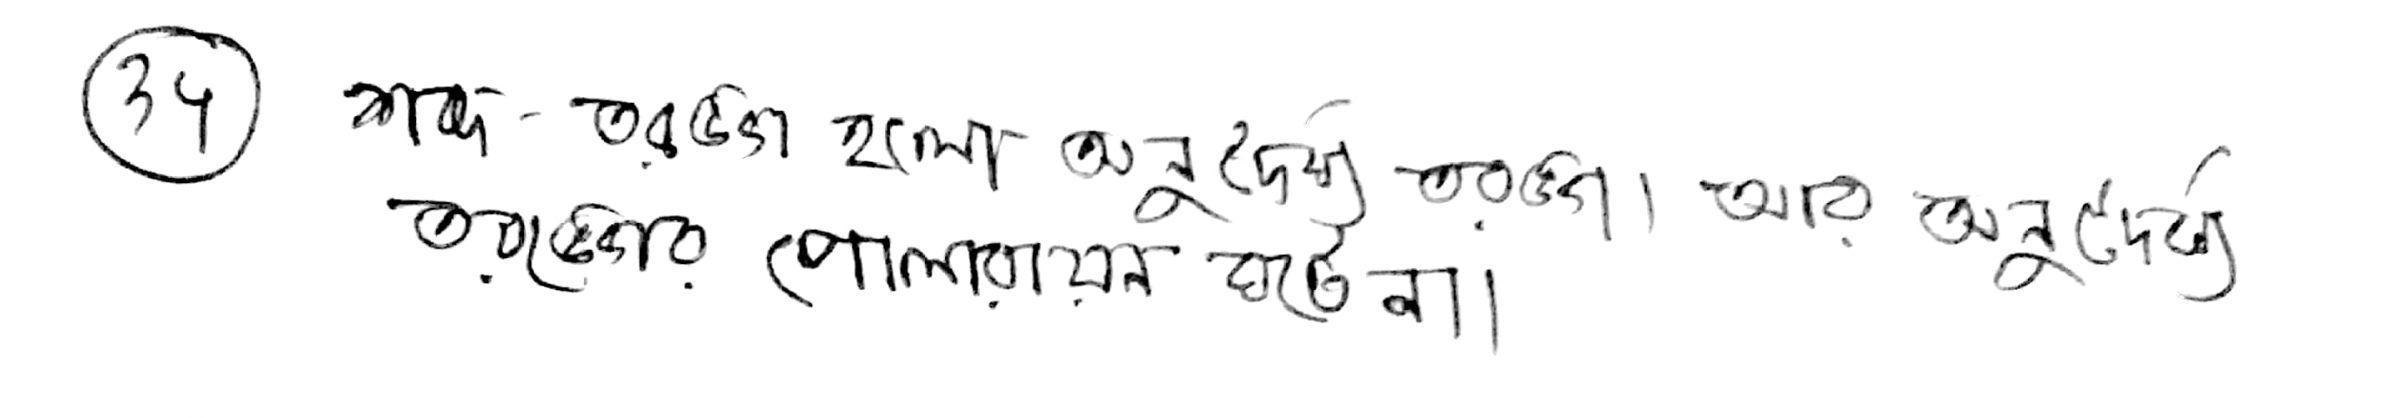 34 শব্দ - তরঙ্গ হলো অনুদৈর্ঘ্য তরঙ্গ। আর অনুদৈর্ঘ্য
তরঙ্গের পোলারায়ন ঘটে না।